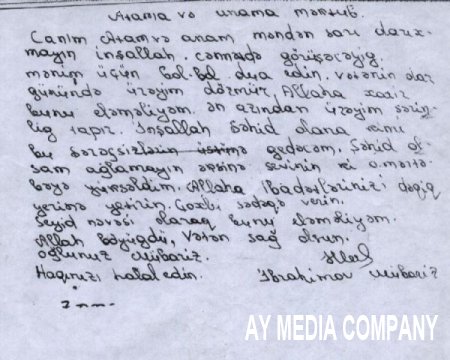 Atama və anama məktub.
Canım Atam və anam məndən sarı darıx-
mayın inşallah. cənnətdə görüşəcəyig.
mənim üçün bol-bol dua edin. vətənin dar
günündə ürəyim dözmür, Allaha xatir
bunu eləməliyəm. ən azından ürəyim sərin-
lig tapır. İnşallah Şəhid olana kimi
bu şərəfsizlərin üstünə gedəcəm. Şəhid ol-
sam ağlamayın əksinə sevinin ki o mərtə-
bəyə yüksəldim. Allaha ibadətlərinizi dəqiq
yerinə yetirin. Çoxlu sədəqə verin.
Seyid nəvəsi olaraq bunu eləməliyəm.
Allah böyükdü, Vətən sağ olsun.
oğlunuz Mübariz.
Haqqınızı halal edin. İbrahimov Mübariz
AY MEDIA COMPANY